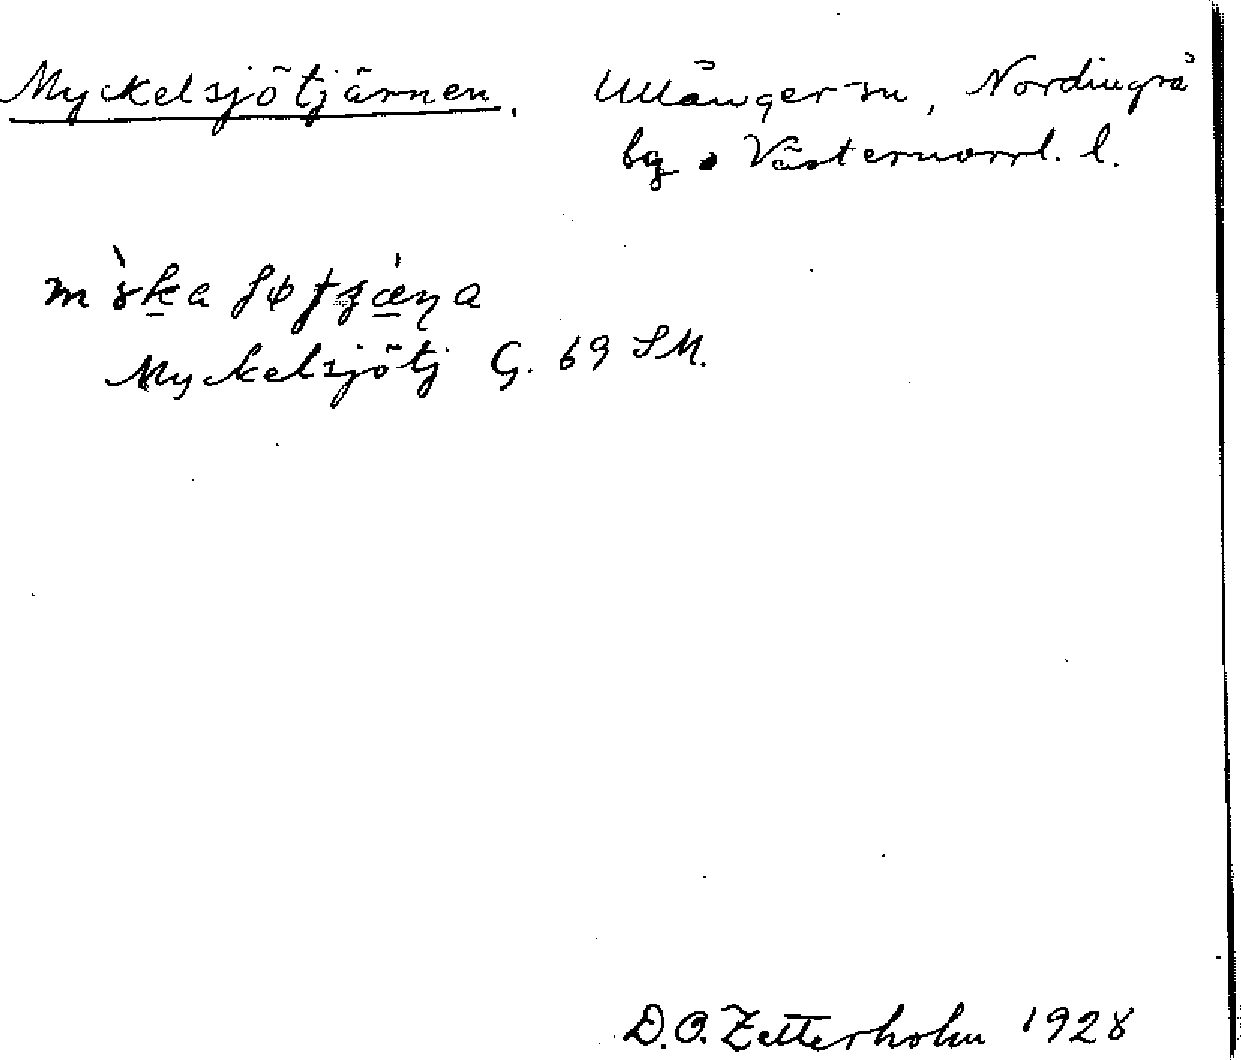 Myckelsjötjärnen. Ullånger sn, Nordingrå
bg. Västernorrl. l.
Myckelsjötj G. 69 SM.
D.O. Zetterholm 1928